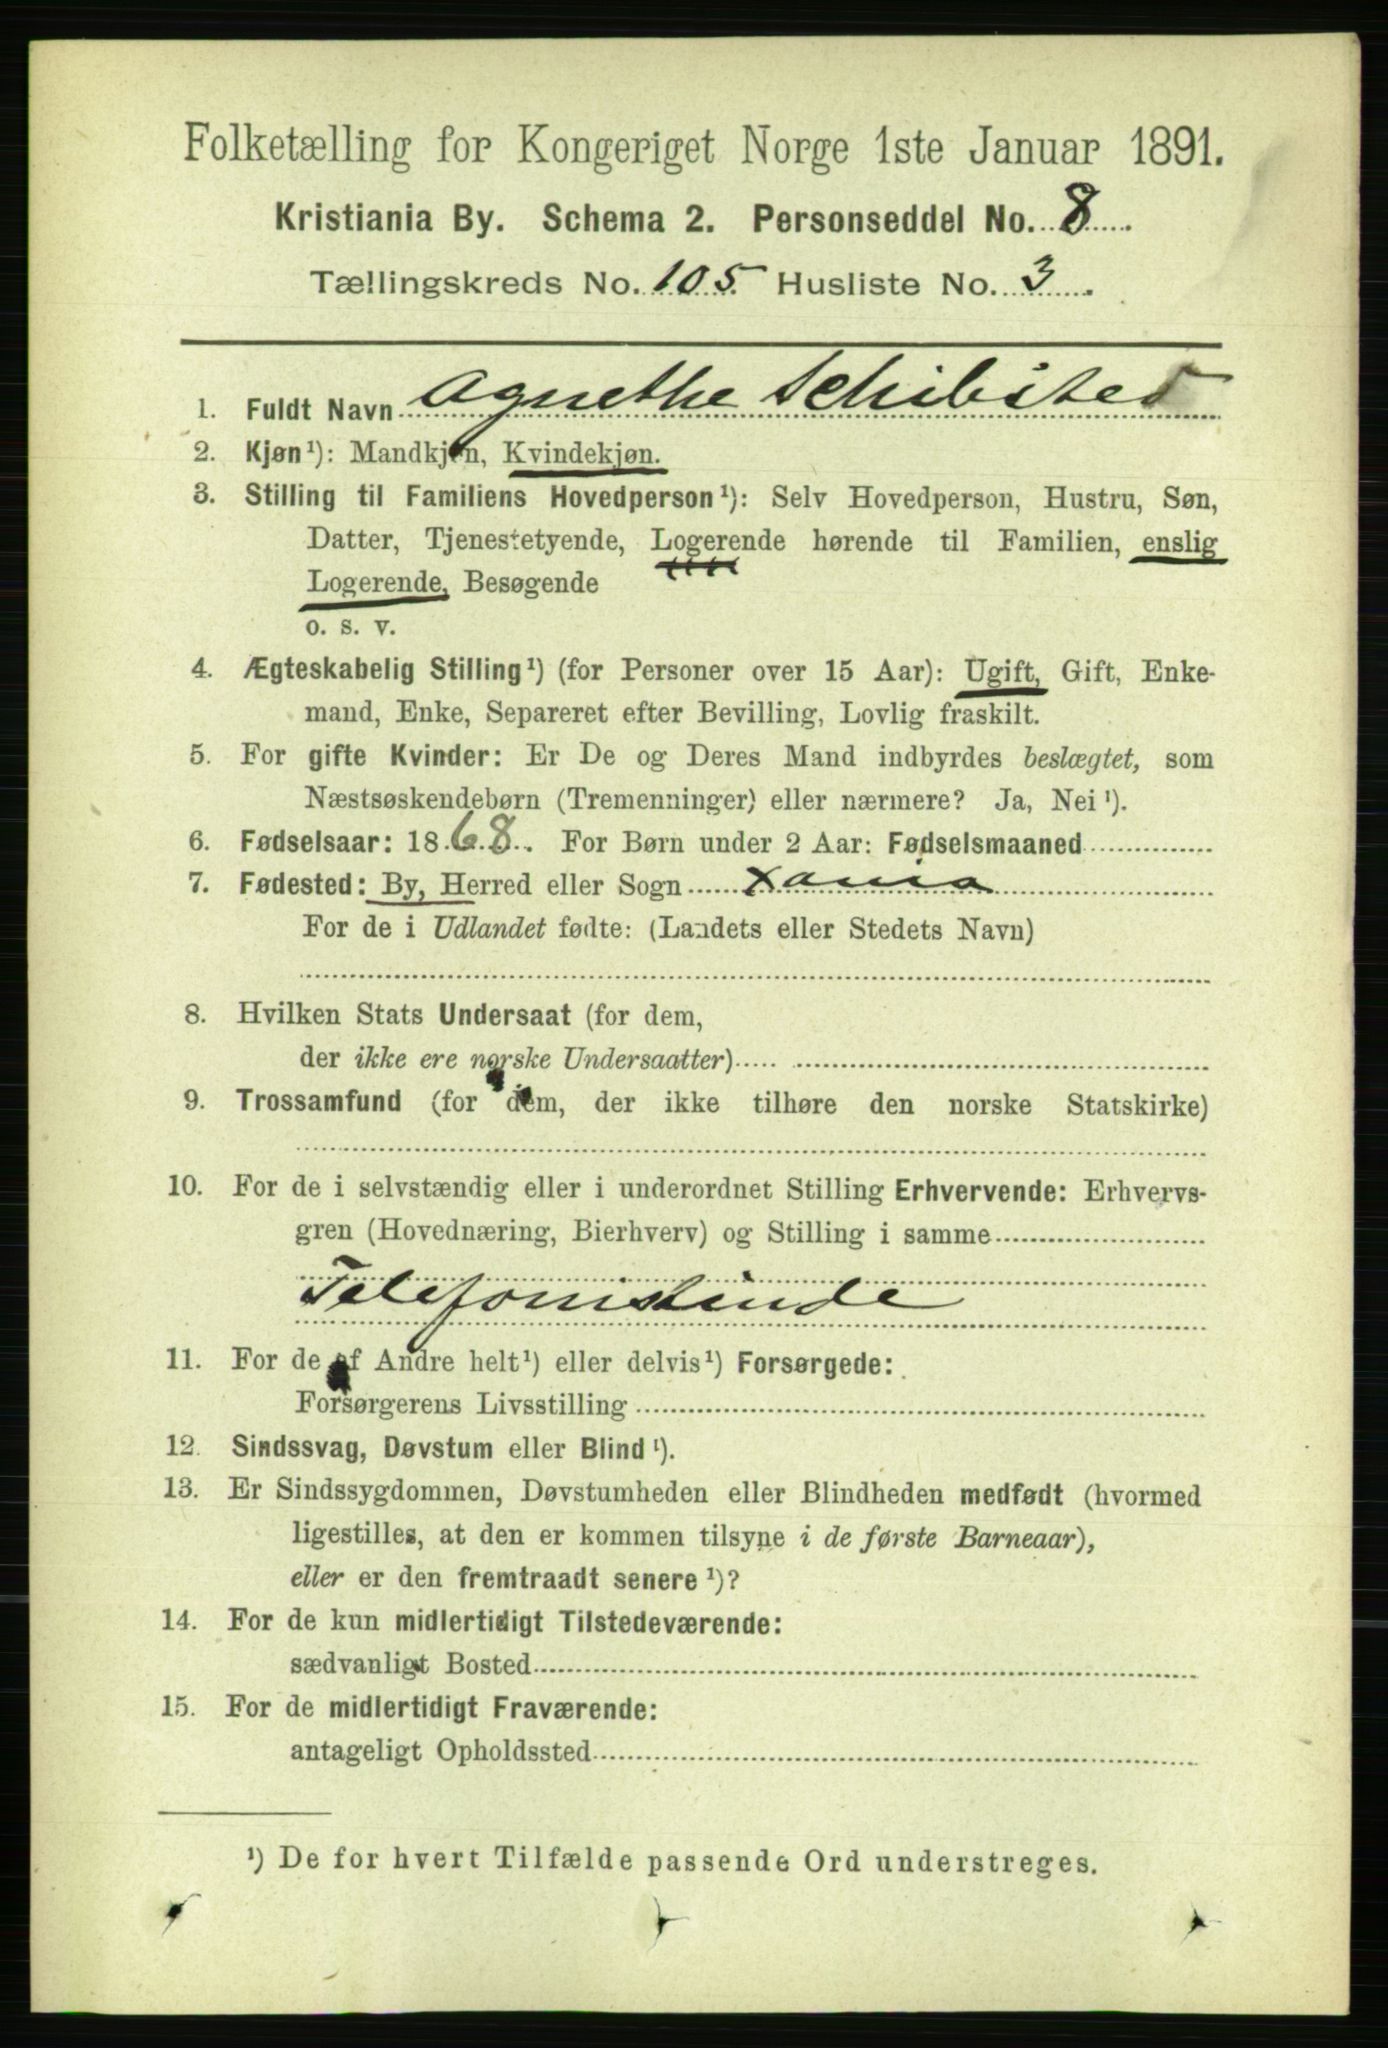 Folketælling for Kongeriget Norge 1ste Januar 1891.
Kristiania By. Schema 2. Personseddel No. 8
Tællingskreds No. 105 Husliste No. 3
1. Fuldt Navn Agnethe Schibsted
2. Kjøn¹): Mandkjøn, Kvindekjøn.
3. Stilling til Familiens Hovedperson¹): Selv Hovedperson, Hustru, Søn,
Datter, Tjenestetyende, Logerende hørende til Familien, enslig
Logerende, Besøgende
o. s. v.
4. Ægteskabelig Stilling¹) (for Personer over 15 Aar): Ugift, Gift, Enke-
mand, Enke, Separeret efter Bevilling, Lovlig fraskilt.
5. For gifte Kvinder: Er De og Deres Mand indbyrdes beslægtet, som
Næstsøskendebørn (Tremenninger) eller nærmere? Ja, Nei¹).
6. Fødselsaar: 1868. For Børn under 2 Aar: Fødselsmaaned
7. Fødested: By, Herred eller Sogn Xania
For de i Udlandet fødte: (Landets eller Stedets Navn)
8. Hvilken Stats Undersaat (for dem,
der ikke ere norske Undersaatter)
9. Trossamfund (for dem, der ikke tilhøre den norske Statskirke)
10. For de i selvstændig eller i underordnet Stilling Erhvervende: Erhvervs-
gren (Hovednæring, Bierhverv) og Stilling i samme
Telefonistinde
11. For de af Andre helt¹) eller delvis¹) Forsørgede:
Forsørgerens Livsstilling
12. Sindssvag, Døvstum eller Blind¹).
13. Er Sindssygdommen, Døvstumheden eller Blindheden medfødt (hvormed
ligestilles, at den er kommen tilsyne i de første Barneaar),
eller er den fremtraadt senere¹)?
14. For de kun midlertidigt Tilstedeværende:
sædvanligt Bosted
15. For de midlertidigt Fraværende:
antageligt Opholdssted
¹) De for hvert Tilfælde passende Ord understreges.